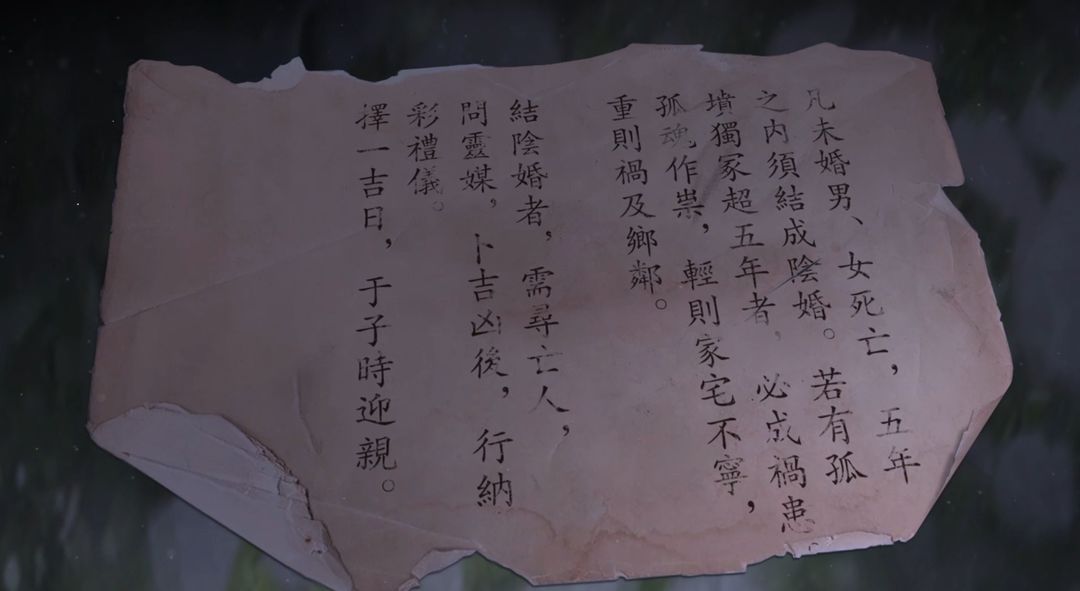 凡未婚男、女死亡，五年
之内須結成陰婚。若有孤
墳獨冢超五年者，必成禍患，
孤魂作祟，輕則家宅不寧，
重則禍及鄉鄰。
結陰婚者，需尋亡人，
問靈媒，卜吉凶後，行納
彩禮儀。
擇一吉日，于子時迎親。